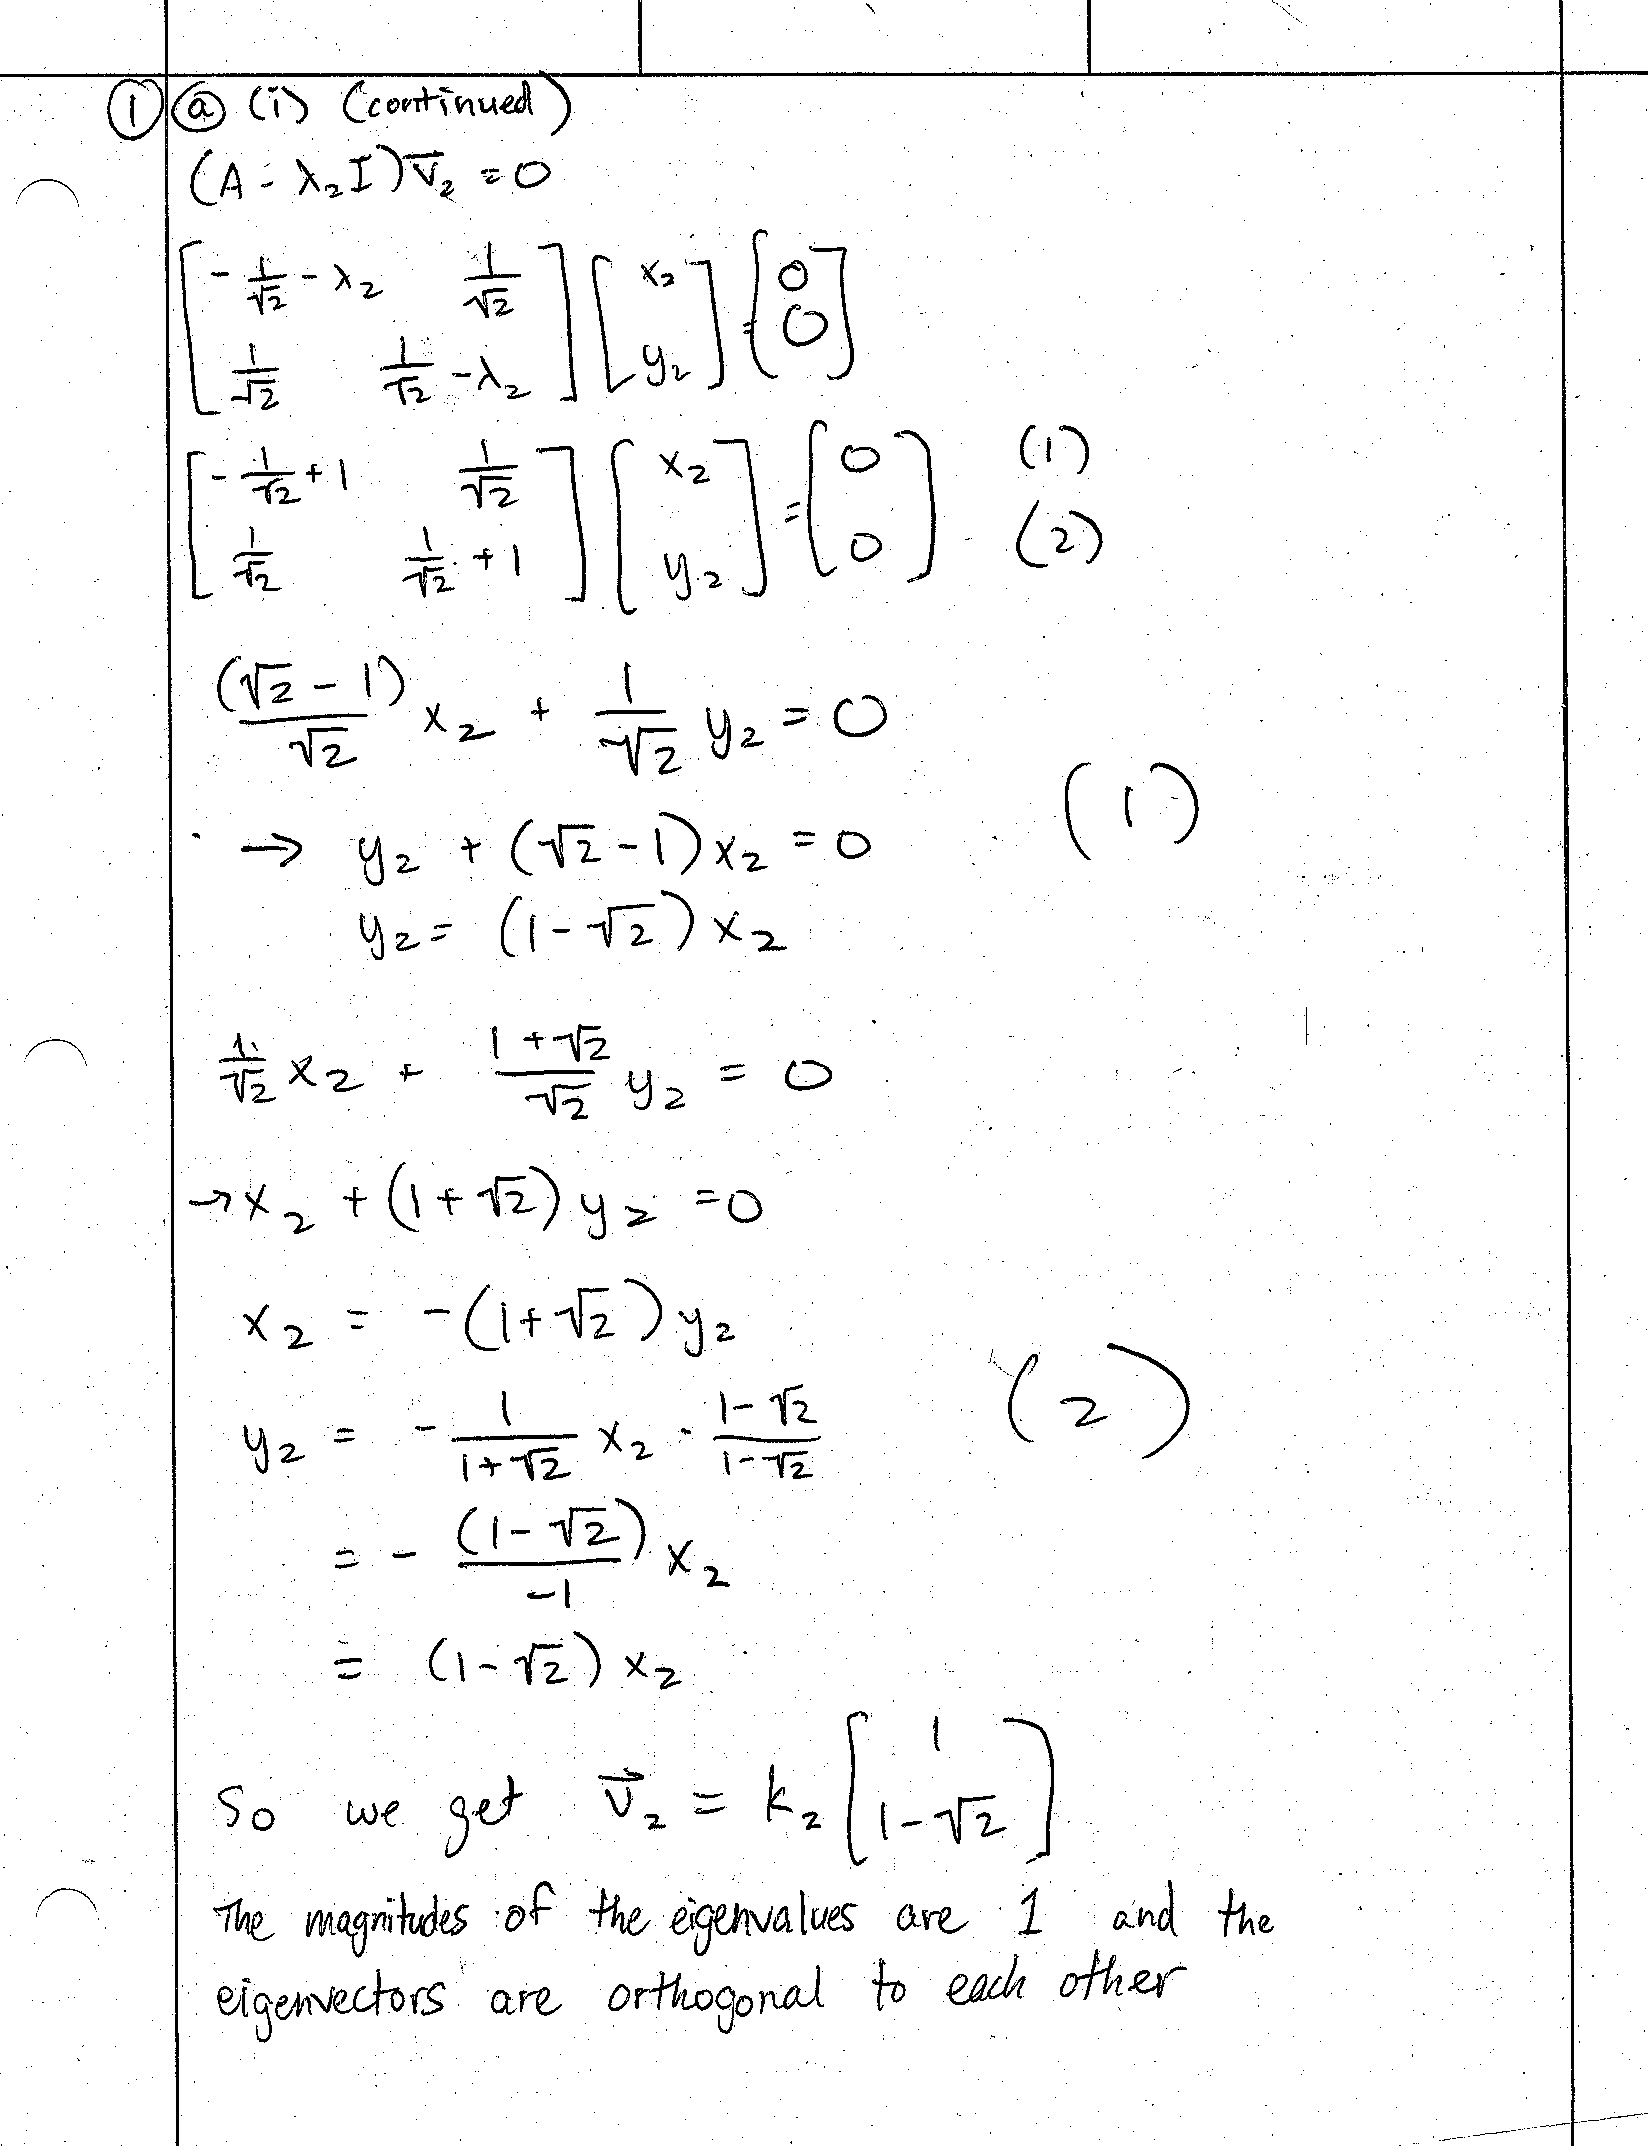 ① ⓐ (i) (continued)
(A - λ₂I)v⃗₂ = 0
[ -1/√2 - λ₂   1/√2 ; 1/√2   1/√2 - λ₂ ] [ x₂ ; y₂ ] = [ 0 ; 0 ]
[ -1/√2 + 1   1/√2 ; 1/√2   1/√2 + 1 ] [ x₂ ; y₂ ] = [ 0 ; 0 ]   (1) (2)
(√2 - 1)/√2 x₂ + 1/√2 y₂ = 0
→ y₂ + (√2 - 1) x₂ = 0   (1)
y₂ = (1 - √2) x₂
1/√2 x₂ + (1 + √2)/√2 y₂ = 0
→ x₂ + (1 + √2) y₂ = 0
x₂ = -(1 + √2) y₂
y₂ = - 1/(1 + √2) x₂ · (1 - √2)/(1 - √2)   (2)
= - (1 - √2)/-1 x₂
= (1 - √2) x₂
So we get v⃗₂ = k₂ [ 1 ; 1 - √2 ]
The magnitudes of the eigenvalues are 1 and the
eigenvectors are orthogonal to each other